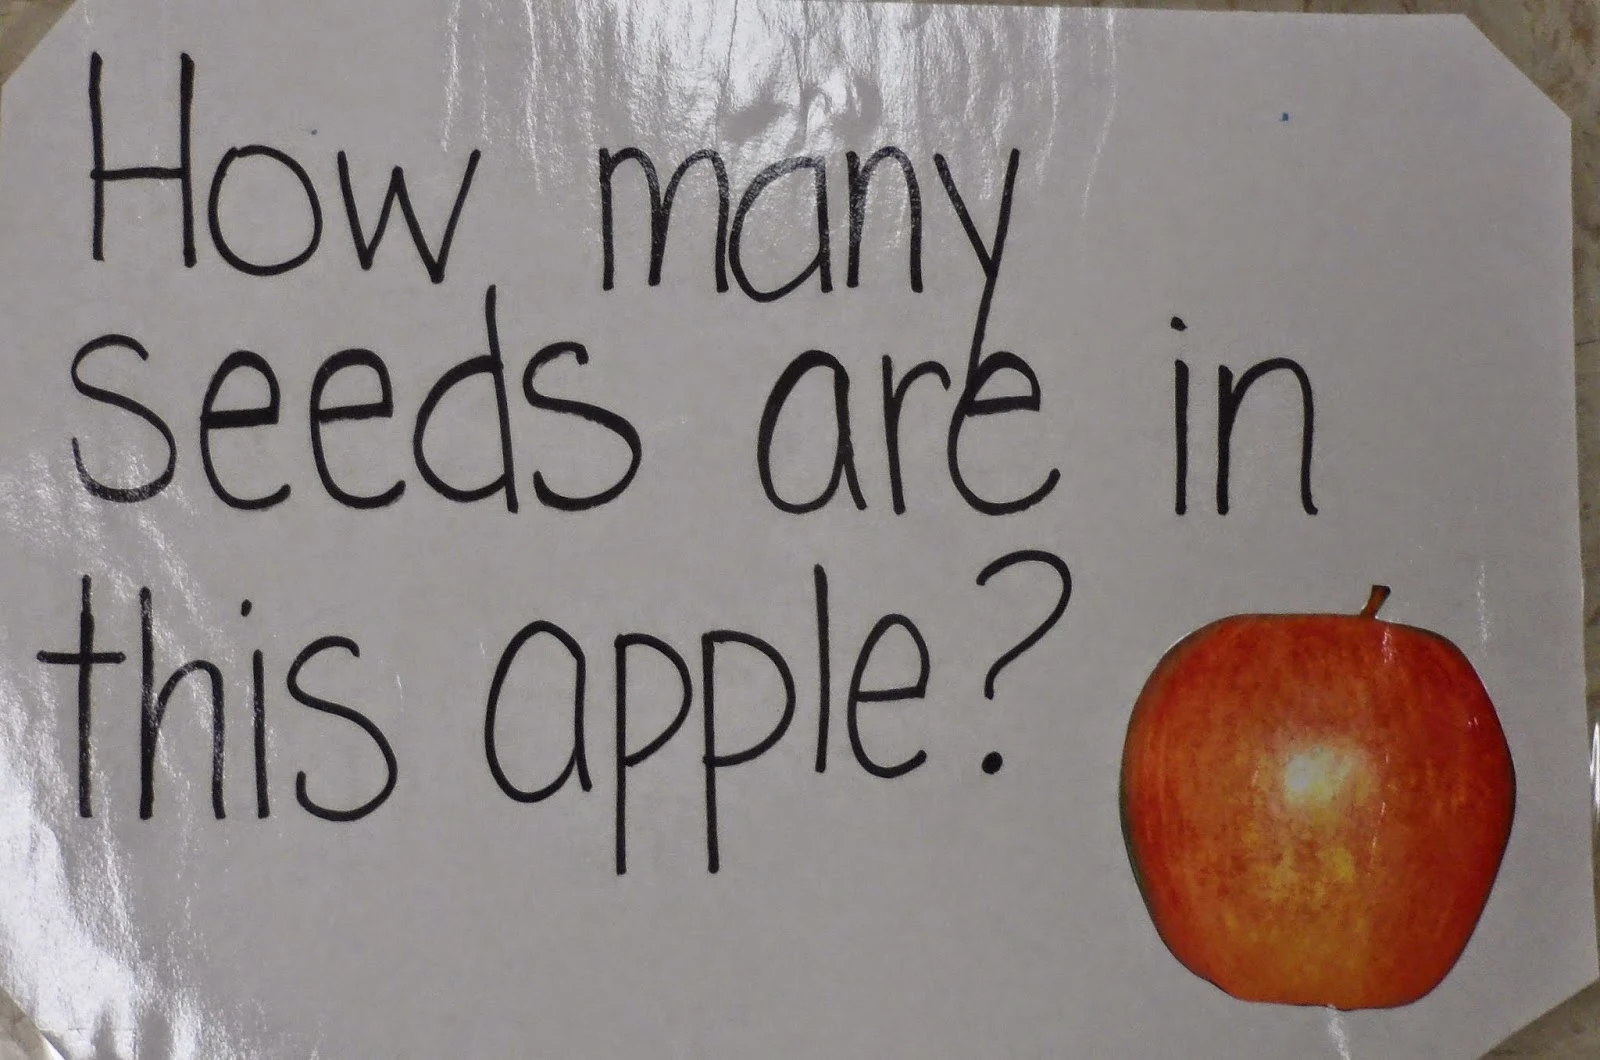 How many
seeds are in
this apple?